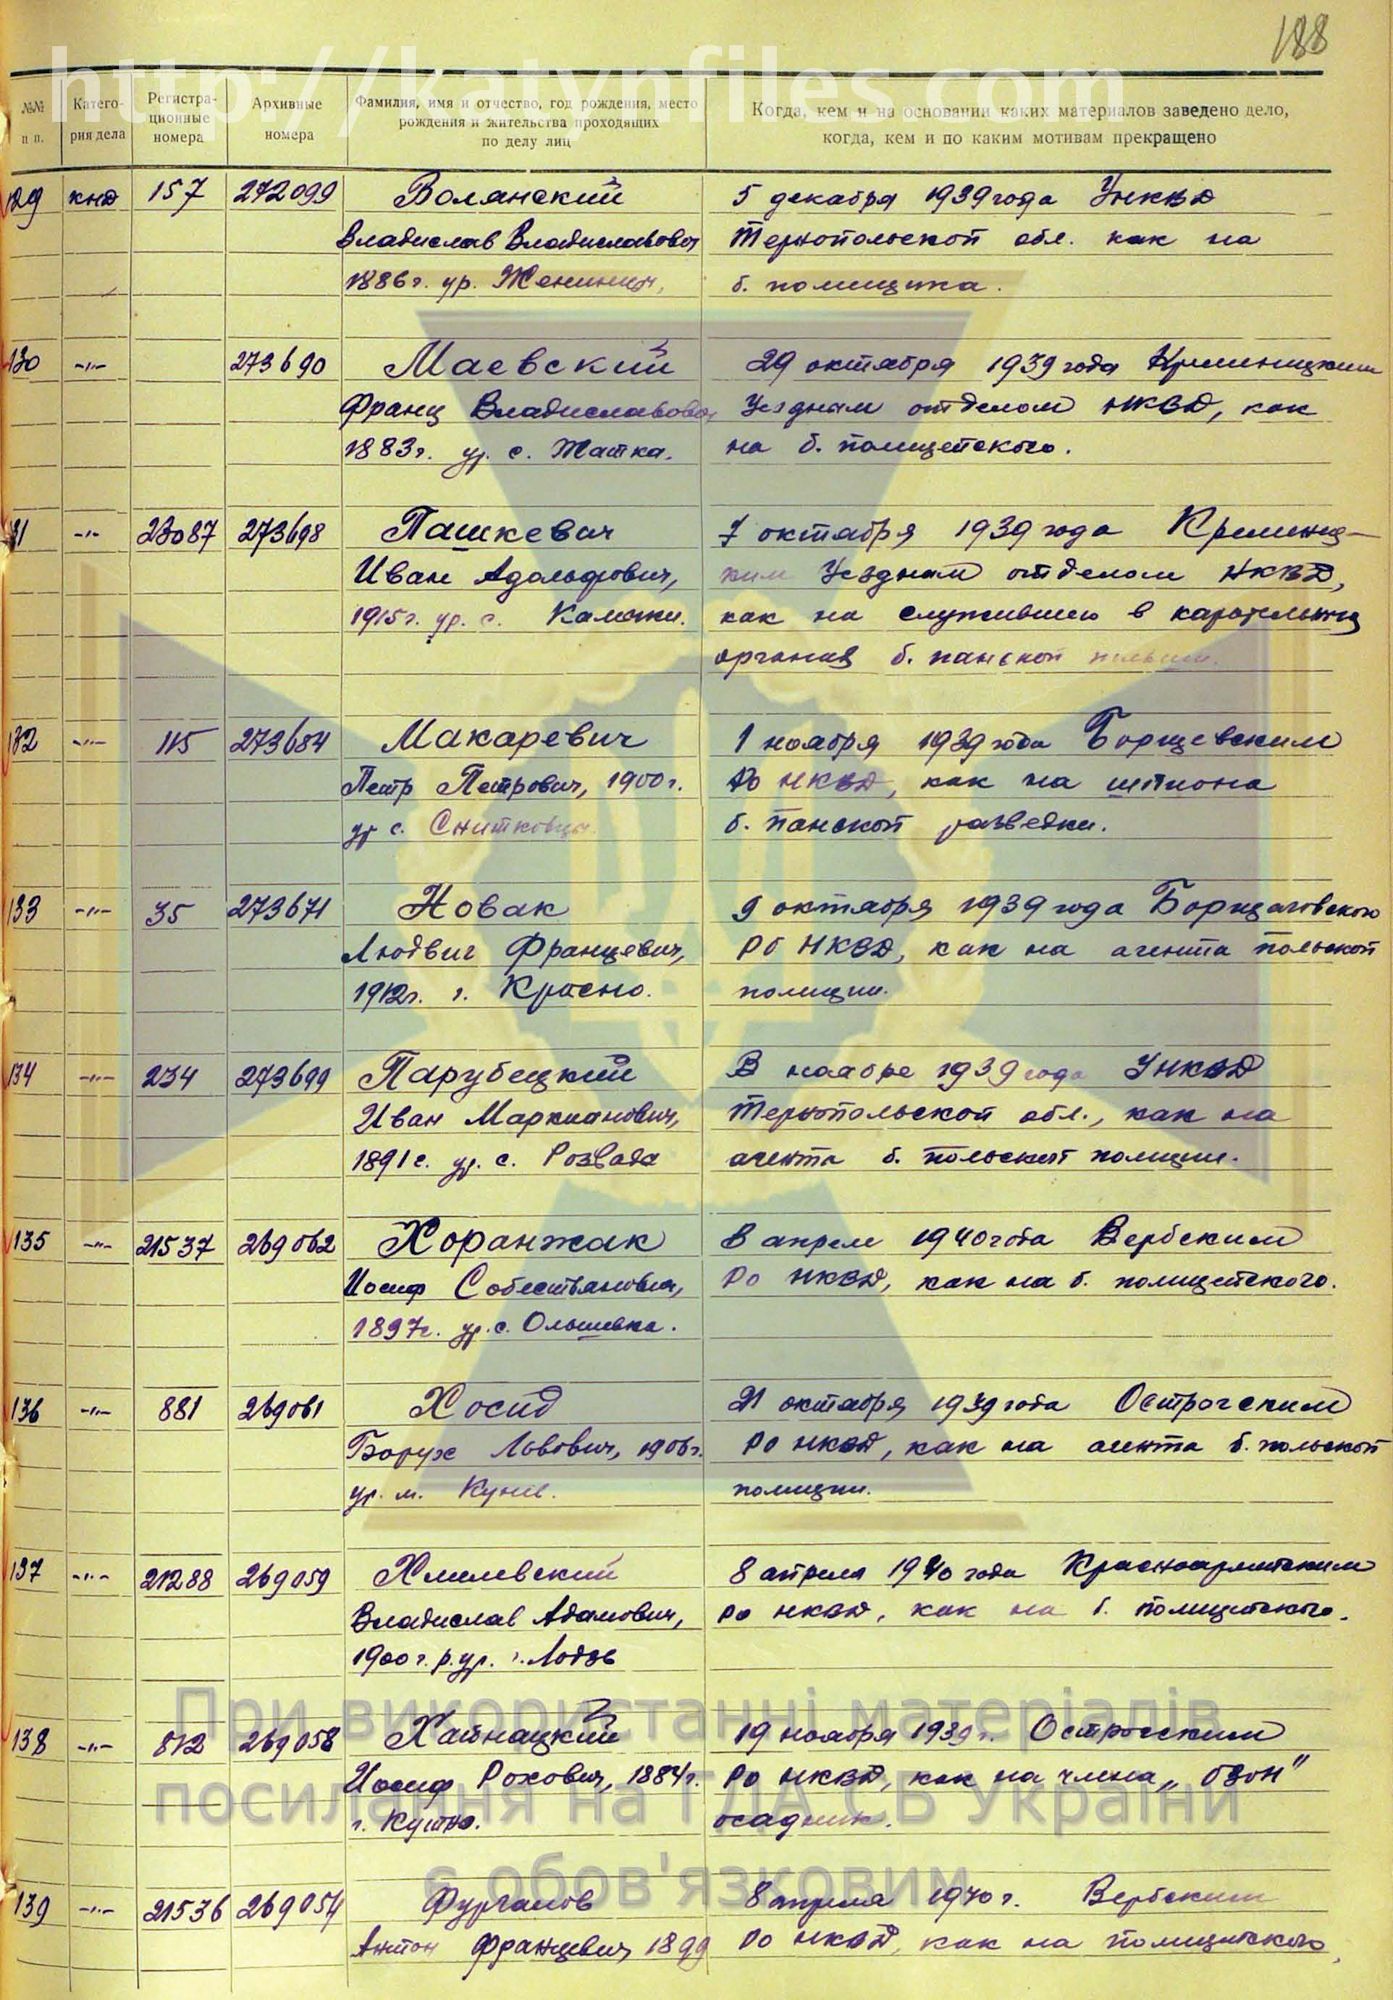 188
http://katynfiles.com
№№ п п.
Катего-
рия дела
Регистра-
ционные
номера
Архивные
номера
Фамилия, имя и отчество, год рождения, место
рождения и жительства проходящих
по делу лиц
Когда, кем и на основании каких материалов заведено дело,
когда, кем и по каким мотивам прекращено
129 кнд 157 272099 Волянский 5 декабря 1939 года УНКВД
Владислав Владиславович Тернопольской обл. как на
1886 г. ур. б. помещика.
130 -"- 273690 Маевский 29 октября 1939 года Кременецким
Франц Владиславович Уездным отделом НКВД, как
1883 г. ур. с. Матка. на б. полицейского.
131 -"- 23087 273698 Пашкевич 7 октября 1939 года Кременец-
Иван Адольфович, ким Уездным отделом НКВД,
1915 г. ур. с. как на служившего в карательных
органах б. панской польши.
132 -"- 115 273684 Макаревич 1 ноября 1939 года Борщевским
Петр Петрович, 1900 г. РО НКВД, как на шпиона
ур с. Снитковцы. б. панской разведки.
133 -"- 35 273671 Новак 9 октября 1939 года
Людвиг Францевич, РО НКВД, как на агента польской
1912 г. г. Кросно. полиции.
134 -"- 234 273699 Парубецкий В ноябре 1939 года УНКВД
Иван Маркианович, Тернопольской обл., как на
1891 г. ур. с. Розвада агента б. польской полиции.
135 -"- 21537 269062 Хоранжак 8 апреля 1940 года Вербским
Иосиф Собестьянович, РО НКВД, как на б. полицейского.
1897 г. ур. с. Ольшивка.
136 -"- 881 269061 Хосид 21 октября 1939 года Острогским
Борух Львович, 1906 г. РО НКВД, как на агента б. польской
ур. м. Кунев. полиции.
137 -"- 21288 269059 Хмелевский 8 апреля 1940 года Красноармейским
Владислав Адамович, РО НКВД, как на б. полицейского.
1900 г. р. ур. г. Лодзь
138 -"- 812 269058 Хайнацкий 19 ноября 1939 г. Острогским
Иосиф Рохович, 1884 г. РО НКВД, как на члена „ОЗОН"
г. Кутно. осадник.
139 -"- 21536 269054 Фурганов 8 апреля 1940 г. Вербским
Антон Францевич, 1899 РО НКВД, как на полицейского,
При використанні матеріалів
посилання на ГДА СБ України
є обов'язковим